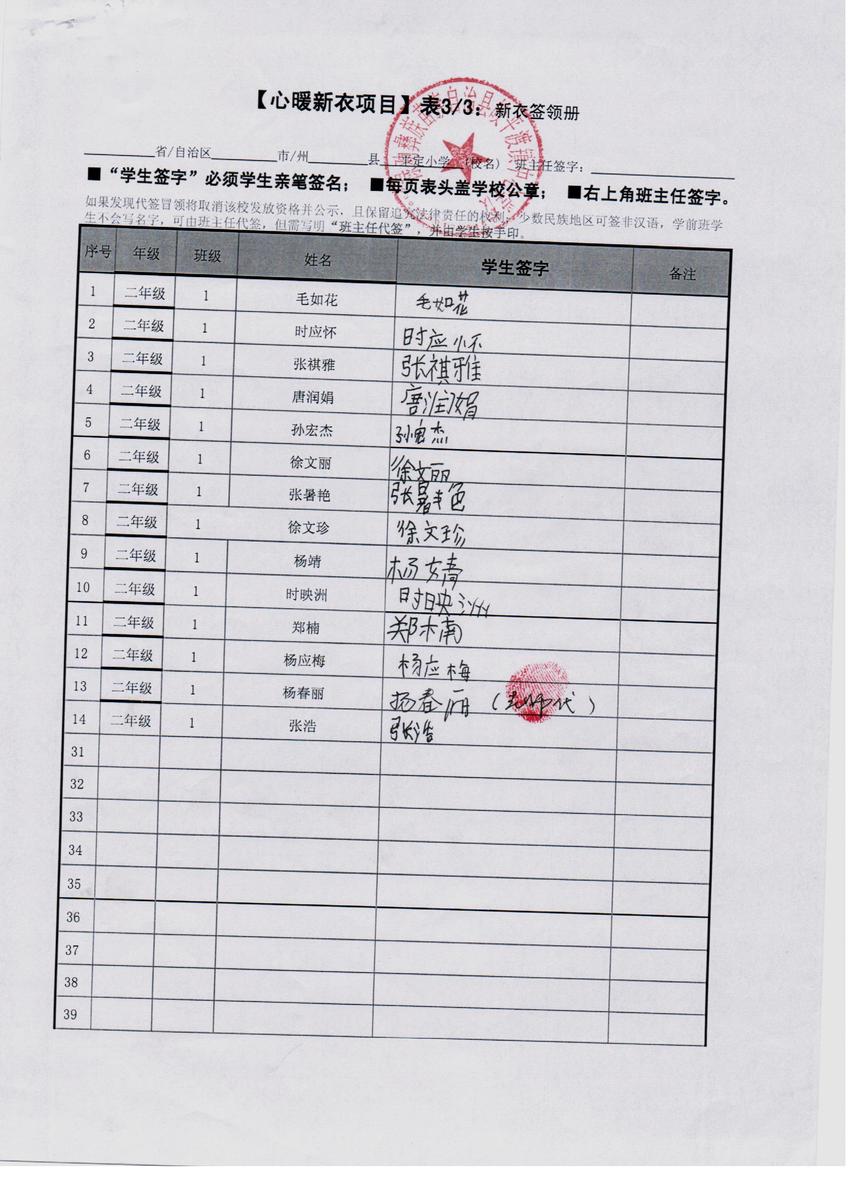 【心暖新衣项目】表3/3：新衣签领册
省/自治区 市/州 县 平定小学 （校名） 班主任签字：
■“学生签字”必须学生亲笔签名； ■每页表头盖学校公章； ■右上角班主任签字。
如果发现代签冒领将取消该校发放资格并公示，且保留追究法律责任的权利。少数民族地区可签非汉语，学前班学
生不会写名字，可由班主任代签，但需写明“班主任代签”，并由学生按手印。
序号 年级 班级 姓名 学生签字 备注
1 二年级 1 毛如花 毛如花
2 二年级 1 时应怀 时应怀
3 二年级 1 张祺雅 张祺雅
4 二年级 1 唐润娟 唐润娟
5 二年级 1 孙宏杰 孙宏杰
6 二年级 1 徐文丽 徐文丽
7 二年级 1 张暑艳 张暑艳
8 二年级 1 徐文珍 徐文珍
9 二年级 1 杨靖 杨婧
10 二年级 1 时映洲 时映洲
11 二年级 1 郑楠 郑楠
12 二年级 1 杨应梅 杨应梅
13 二年级 1 杨春丽 杨春丽（老师代）
14 二年级 1 张浩 张浩
31
32
33
34
35
36
37
38
39